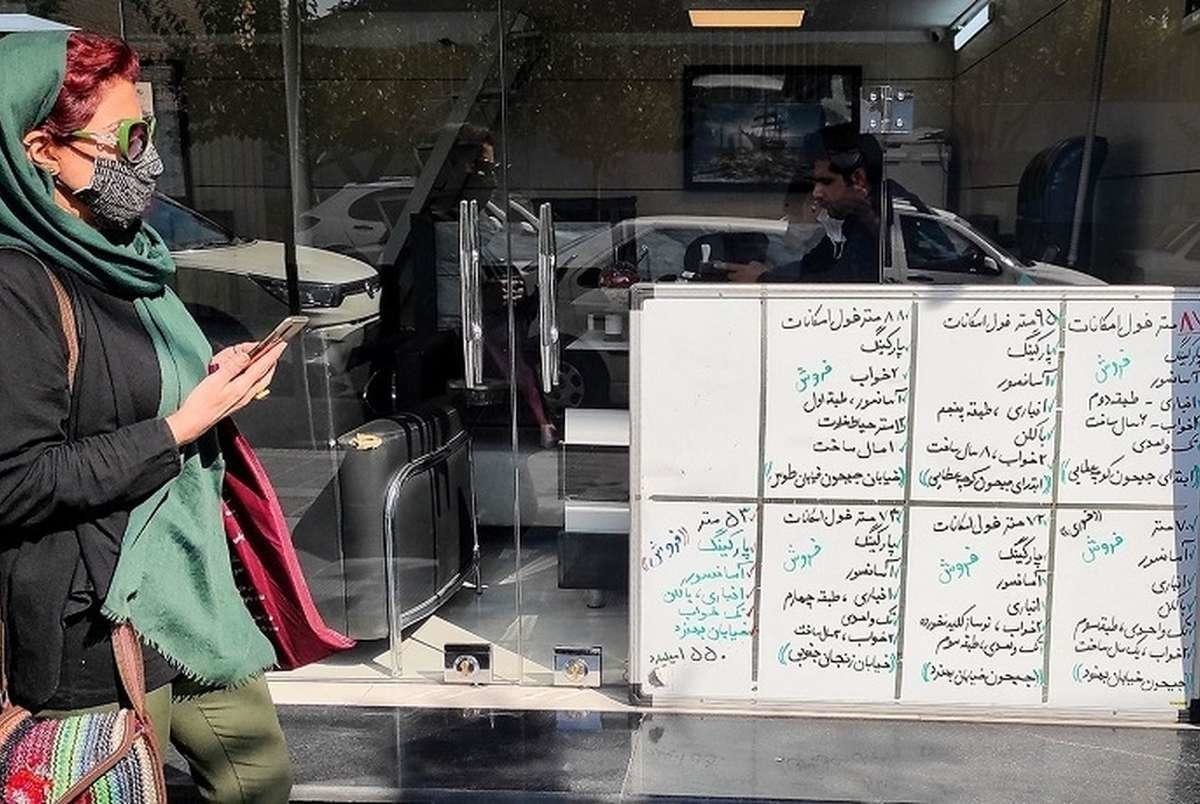 متر فول امکانات
پارکینگ
فروش
آسانسور
انباری - طبقه دوم
۲خواب - ۶ سال ساخت
تک واحدی
((ابتدای جیحون کوچه عطایی))
۹۵ متر فول امکانات
پارکینگ
آسانسور
انباری ، طبقه پنجم
بالکن
۲ خواب ، ۸ سال ساخت
((ابتدای جیحون کوچه عطایی))
۸۸ متر فول امکانات
پارکینگ
۲ خواب فروش
آسانسور ، طبقه اول
۱۲ متر حیاط خلوت
۱۰ سال ساخت
((خیابان جیحون خیابان طوس))
۷۰ متر ((فوری))
فروش
آسانسور
انباری
بالکن
تک واحدی ، طبقه سوم
۲خواب ، یک سال ساخت
((جیحون خیابان بهنود))
۷۲ متر فول امکانات
پارکینگ
فروش
آسانسور
انباری
۲خواب ، نوساز کلید نخورده
تک واحدی ، طبقه سوم
((جیحون خیابان بهنود))
۷۳ متر فول امکانات
پارکینگ
فروش
آسانسور
انباری ، طبقه چهارم
تک واحدی
۲خواب ، ۳ سال ساخت
((خیابان زنجان جنوبی))
۵۳ متر
پارکینگ ((فروش))
آسانسور
انباری ، بالکن
تک خواب
خیابان بهنود
۵۵۰ میلیارد